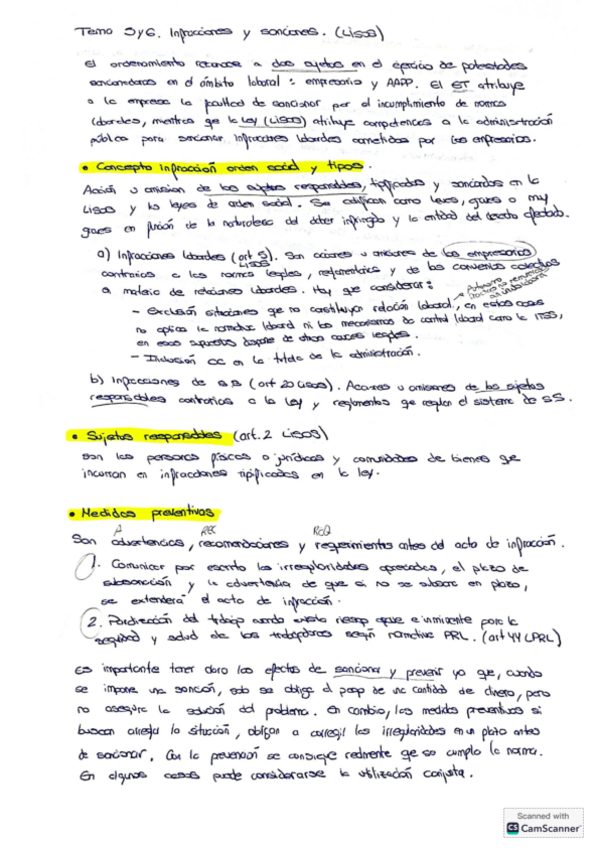 Tema 5 y 6. Infracciones y sanciones. (LISOS)
El ordenamiento reconoce a dos sujetos en el ejercicio de potestades
sancionadoras en el ámbito laboral: empresario y AAPP. El ET atribuye
a la empresa la facultad de sancionar por el incumplimiento de normas
laborales, mientras que la Ley (LISOS) atribuye competencias a la administración
pública para sancionar infracciones laborales cometidas por los empresarios.
• Concepto infracción orden social y tipos.
Acción u omisión de los sujetos responsables, tipificadas y sancionadas en la
LISOS y las leyes de orden social. Se califican como leves, graves o muy
graves en función de la naturaleza del deber infringido y la entidad del derecho afectado.
a) Infracciones laborales (art 5). Son acciones u omisiones de los empresarios
LISOS
contrarias a las normas legales, reglamentarias y de los convenios colectivos
a materia de relaciones laborales. Hay que considerar:
- Exclusión situaciones que no constituyan relación laboral, en estos casos
no aplica la normativa laboral ni los mecanismos de control laboral como la ITSS,
en esos supuestos dispone de otros cauces legales.
- Inclusión CC en la tutela de la administración.
b) Infracciones de SS (art 20 LISOS). Acciones u omisiones de los sujetos
responsables contrarias a la Ley y reglamentos que regulan el sistema de SS.
• Sujetos responsables (art. 2 LISOS)
Son las personas físicas o jurídicas y comunidades de bienes que
incurran en infracciones tipificadas en la ley.
• Medidas preventivas
A REC REQ
Son advertencias, recomendaciones y requerimientos antes del acto de infracción.
1. Comunicar por escrito las irregularidades apreciadas, el plazo de
subsanación y la advertencia de que si no se subsana en plazo,
se extenderá el acto de infracción.
2. Paralización del trabajo cuando exista riesgo grave e inminente para la
seguridad y salud de los trabajadores según normativa PRL. (art 44 LPRL)
Es importante tener claro los efectos de sancionar y prevenir ya que, cuando
se impone una sanción, solo se obliga el pago de una cantidad de dinero, pero
no asegura la solución del problema. En cambio, las medidas preventivas si
buscan arreglar la situación, obligan a corregir las irregularidades en un plazo antes
de sancionar. Con la prevención se consigue realmente que se cumpla la norma.
En algunos casos puede considerarse la utilización conjunta.
Scanned with
CS CamScanner